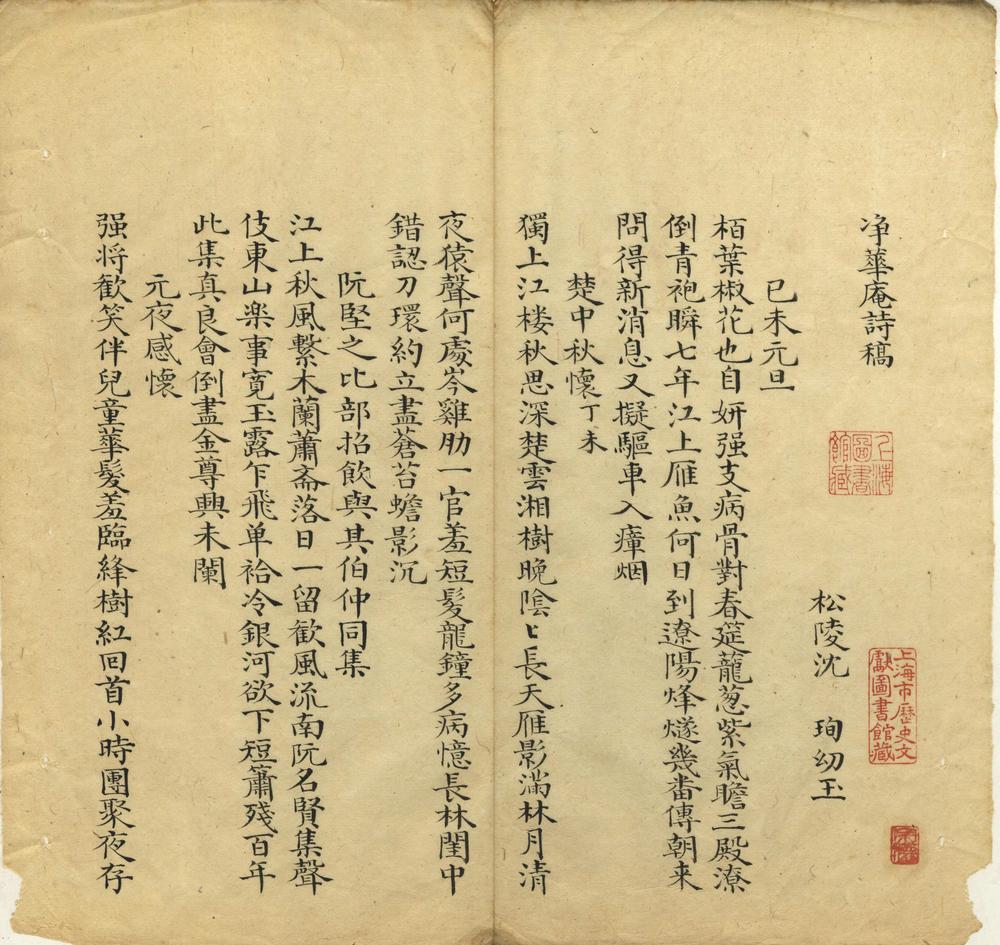 净華庵詩稿
松陵沈　珣幼玉
已未元旦
栢葉椒花也自妍强支病骨對春筵蘢葱紫氣瞻三殿潦
倒青袍瞬七年江上雁魚何日到遼陽烽燧幾畨傳朝来
問得新消息又擬驅車入瘴烟
楚中秋懷丁未
獨上江楼秋思深楚雲湘樹晚陰〻長天雁影滿林月清
夜猿聲何處岑雞肋一官羞短髮龍鐘多病憶長林閨中
錯認刀環約立盡蒼苔蟾影沉
阮堅之比部招飲與其伯仲同集
江上秋風繫木蘭蕭斎落日一留歡風流南阮名賢集聲
伎東山楽事寛玉露乍飛单袷冷銀河欲下短簫殘百年
此集真良會倒盡金尊興未闌
元夜感懷
强将歡笑伴兒童華髮羞臨絳樹紅回首小時團聚夜存
上海圖書館藏
上海市歷史文獻圖書館藏